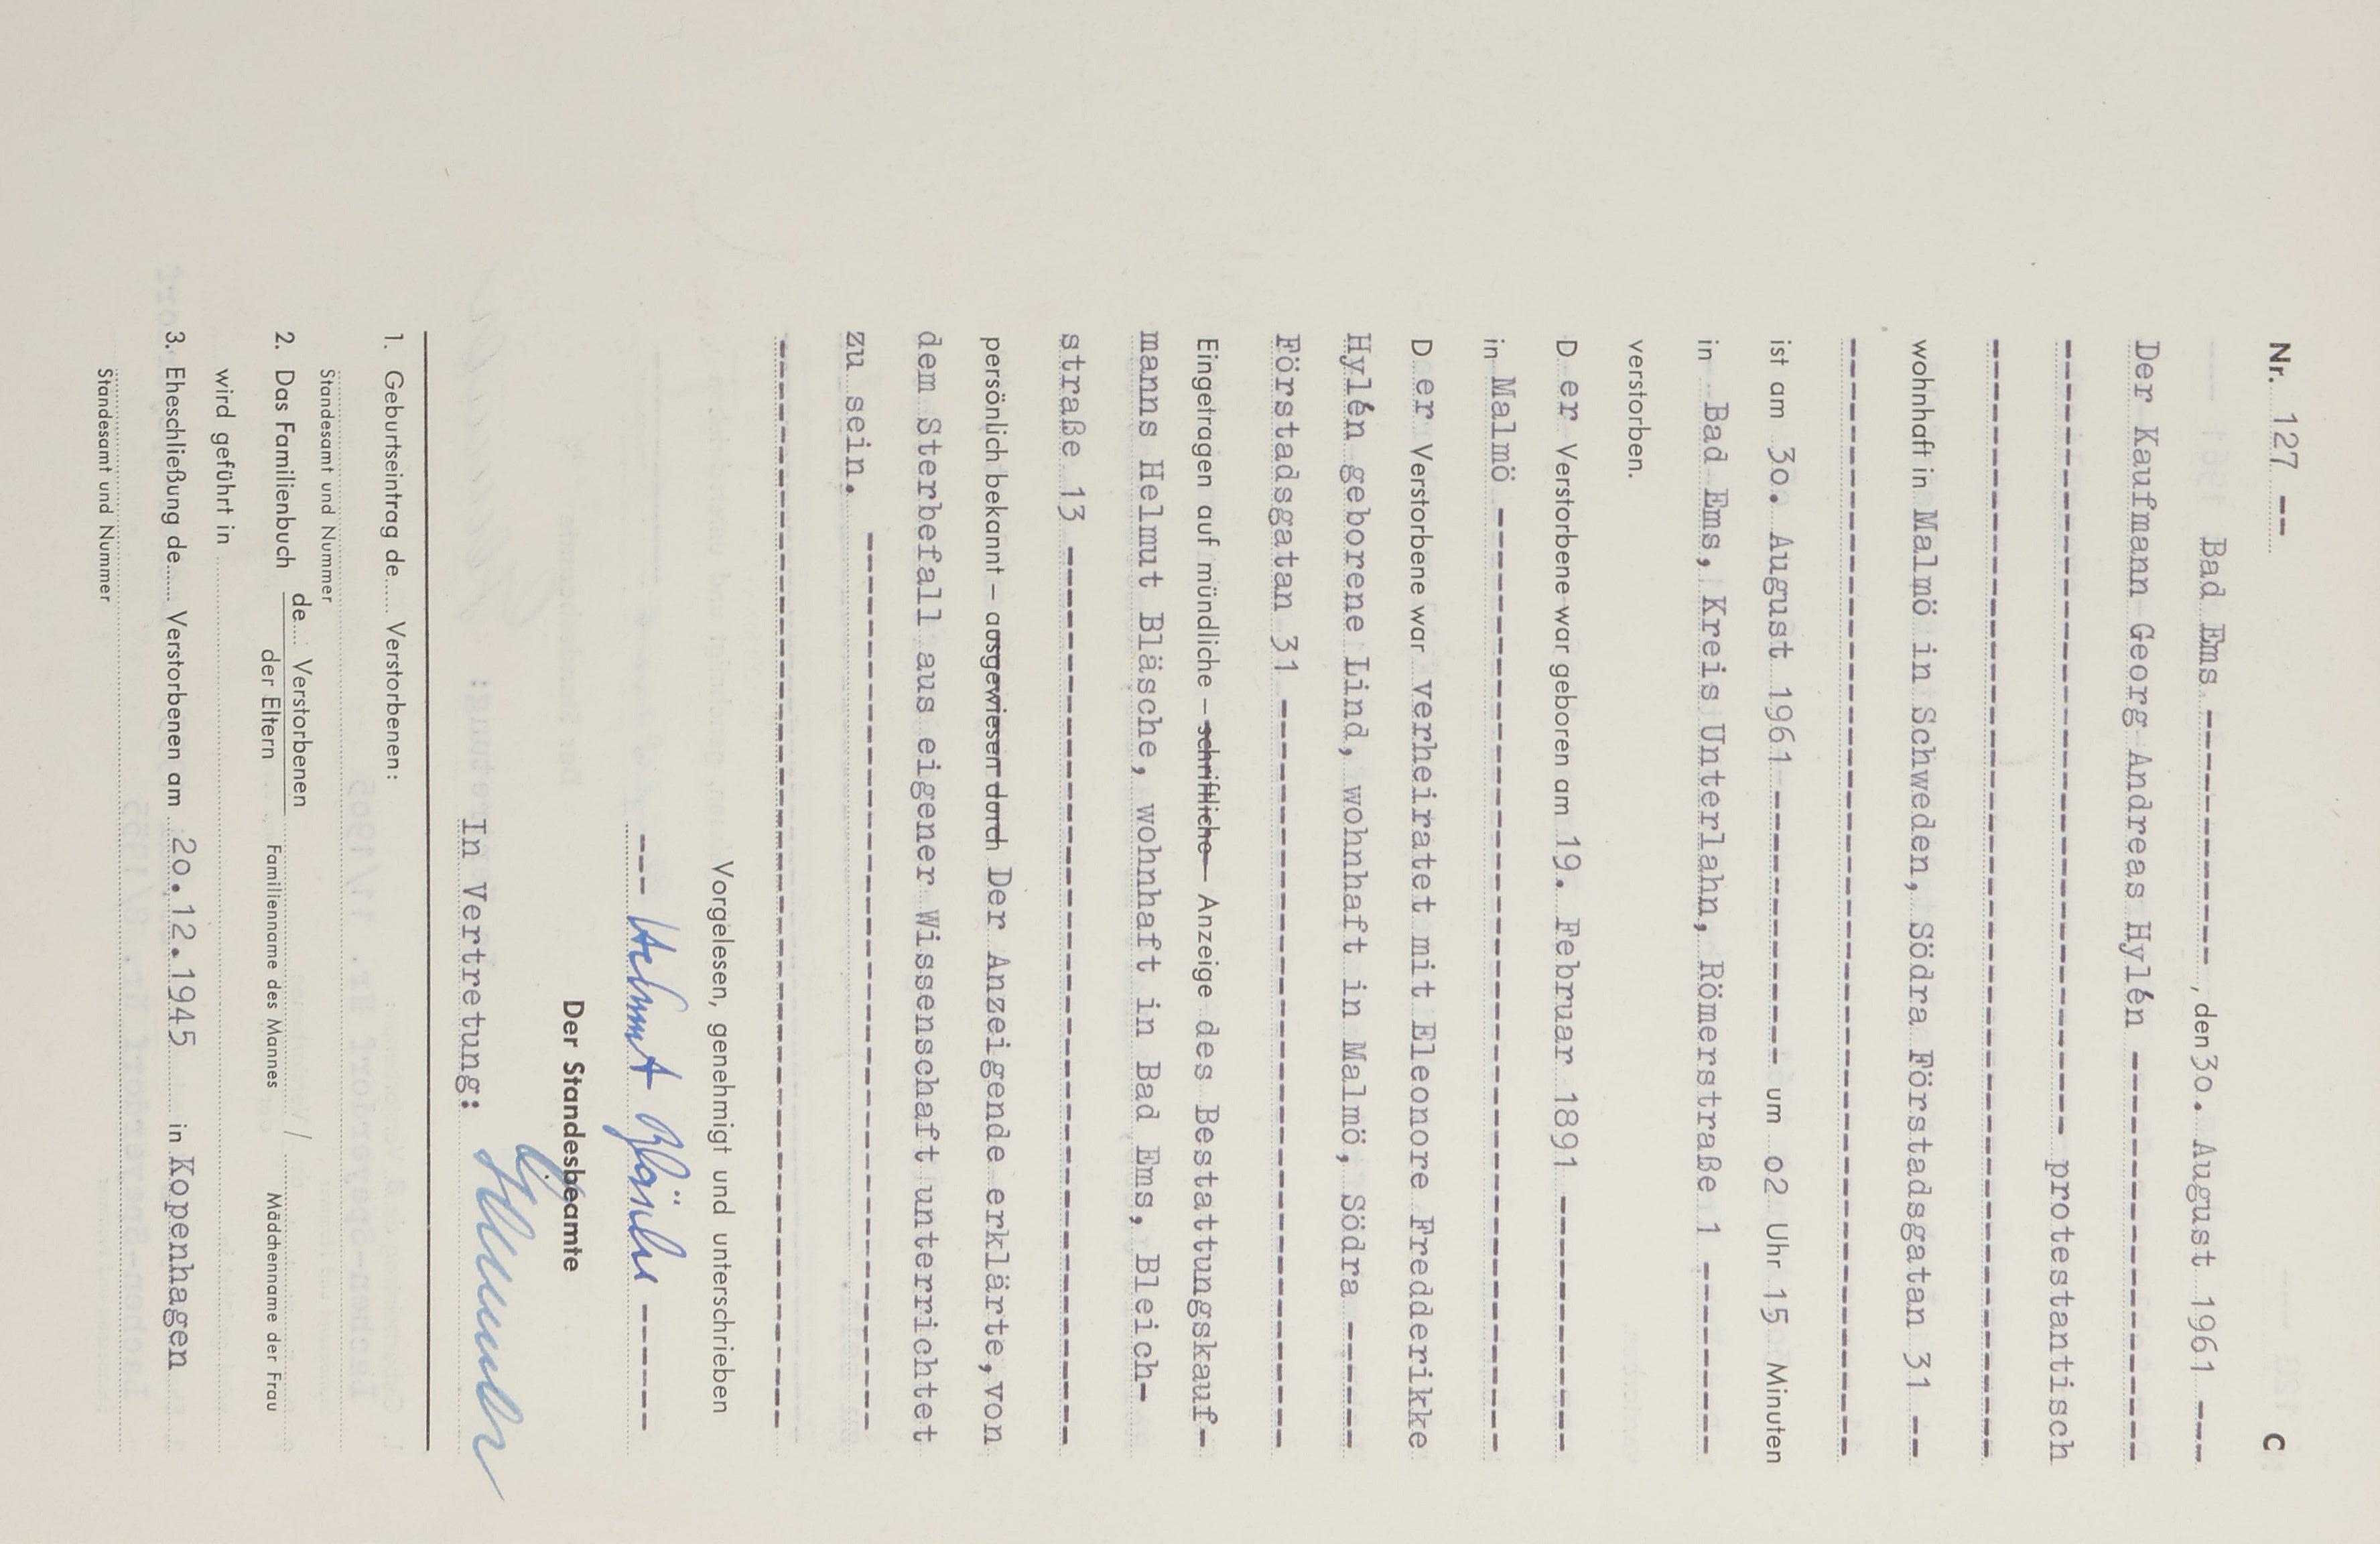 Nr. 127 -- C
Bad Ems ------------, den 3o. August 1961 ---
Der Kaufmann Georg Andreas Hylén ------------------
-------------------------------------- protestantisch
------------------------------------------------------
wohnhaft in Malmö in Schweden, Södra Förstadsgatan 31 --
------------------------------------------------------
ist am 3o. August 1961 ------------- um o2 Uhr 15 Minuten
in Bad Ems, Kreis Unterlahn, Römerstraße 1 ---------
verstorben.
D er Verstorbene war geboren am 19. Februar 1891 ------------
in Malmö ---------------------------------------------
D er Verstorbene war verheiratet mit Eleonore Fredderikke
Hylén geborene Lind, wohnhaft in Malmö, Södra ------
Förstadsgatan 31 ------------------------------------
Eingetragen auf mündliche – schriftliche – Anzeige des Bestattungskauf-
manns Helmut Bläsche, wohnhaft in Bad Ems, Bleich-
straße 13 -------------------------------------------
persönlich bekannt – ausgewiesen durch Der Anzeigende erklärte, von
dem Sterbefall aus eigener Wissenschaft unterrichtet
zu sein. -------------------------------------------
------------------------------------------------------
Vorgelesen, genehmigt und unterschrieben
--- Helmut Bläsche ------
Der Standesbeamte
In Vertretung:
1. Geburtseintrag de..... Verstorbenen:
Standesamt und Nummer
2. Das Familienbuch de.... Verstorbenen / der Eltern
Familienname des Mannes / Mädchenname der Frau
wird geführt in
3. Eheschließung de..... Verstorbenen am 2o.12.1945 in Kopenhagen
Standesamt und Nummer